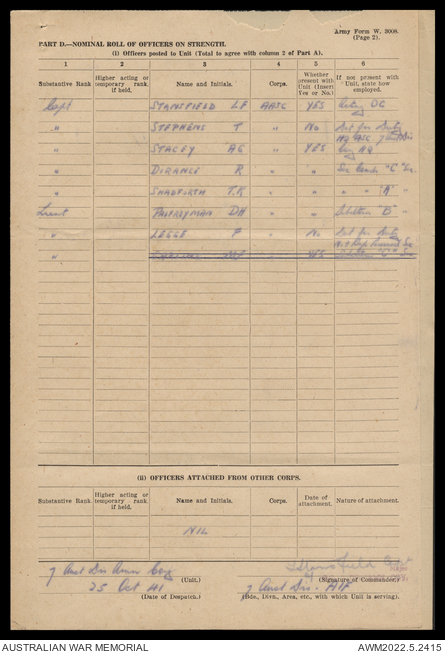 Army Form W. 3008.
(Page 2).
PART D.—NOMINAL ROLL OF OFFICERS ON STRENGTH.
(i) Officers posted to Unit (Total to agree with column 2 of Part A).
1 2 3 4 5 6
Substantive Rank Higher acting or temporary rank, if held. Name and Initials. Corps. Whether present with Unit (Insert Yes or No.) If not present with Unit, state how employed.
Capt STANSFIELD LF AASC YES Acting OC
" STEPHENS T " No Det for Duty
HQ AASC 7 Aust Div
" STACEY AG " YES Coy HQ
" DURANCE R " " "C"
" SHADFORTH T.R " " " " "A" "
Lieut PALFRYMAN DH " " "B" "
" LEGGE F " No Det for Duty
" YES "C"
(ii) OFFICERS ATTACHED FROM OTHER CORPS.
Substantive Rank Higher acting or temporary rank, if held. Name and Initials. Corps. Date of attachment. Nature of attachment.
NIL
7 Aust Div Amn Coy (Unit.) (Signature of Commander.)
25 Oct 41 7 Aust Div. AIF
(Date of Despatch.) (Bde., Divn., Area, etc., with which Unit is serving).
AUSTRALIAN WAR MEMORIAL AWM2022.5.2415